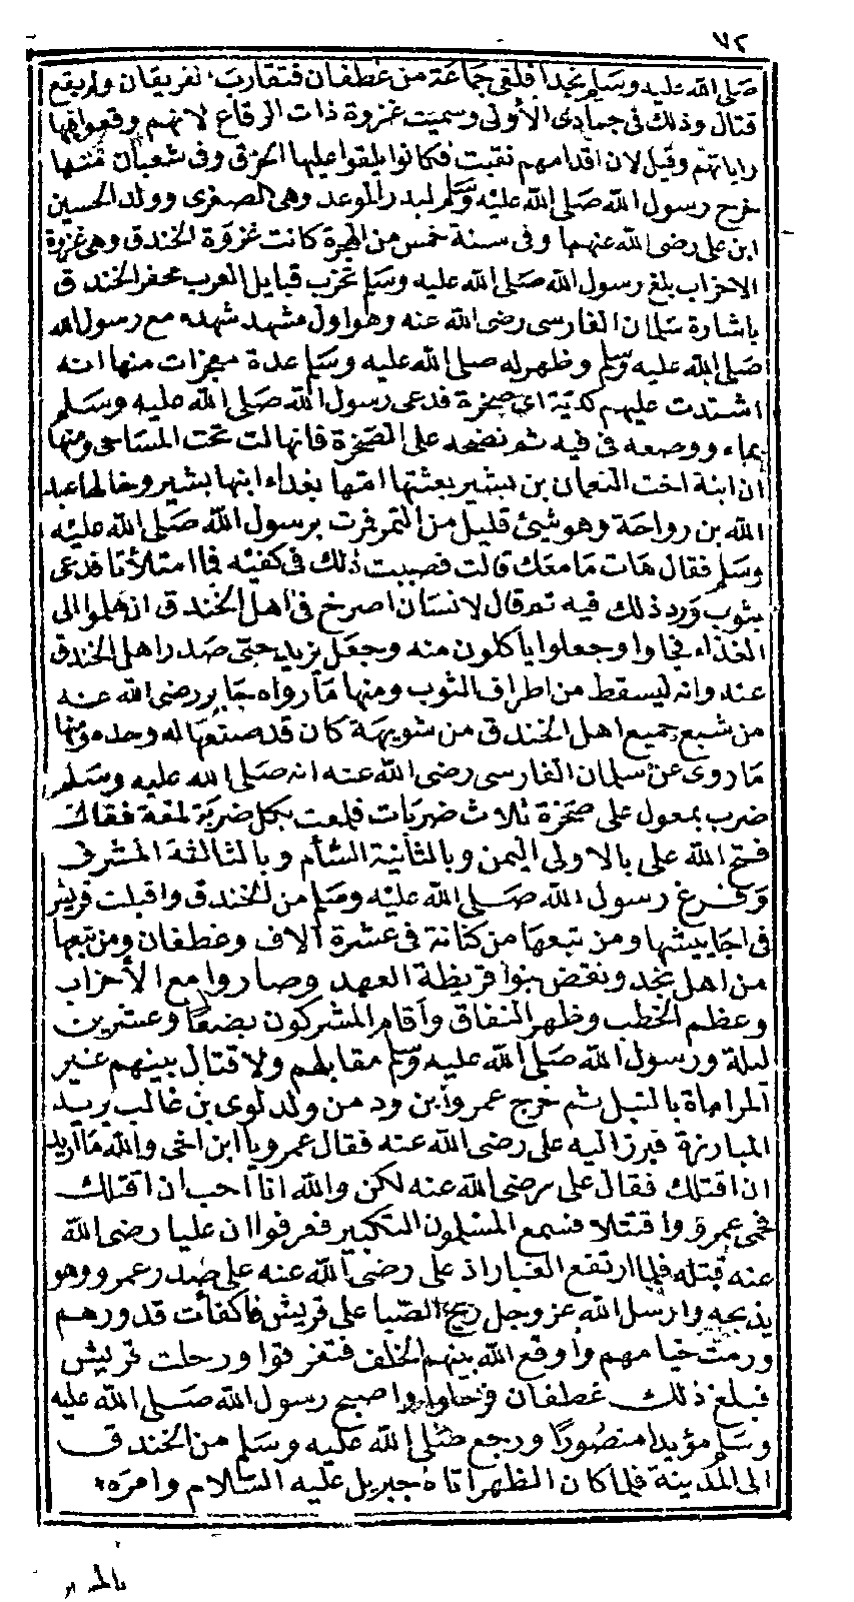 ٧٢
صلى الله عليه وسلم نجدا فلقى جماعة من غطفان فتقارب الفريقان ولم يقع
قتال وذلك فى جمادى الأولى وسميت غزوة ذات الرقاع لانهم وقعوا فيها
راياتهم وقيل لان اقدامهم نقبت فكانوا يلقوا عليها الخرق وفى شعبان منها
خرج رسول الله صلى الله عليه وسلم لبدر الموعد وهى الصغرى وولد الحسين
ابن على رضى الله عنهما وفى سنة خمس من الهجرة كانت غزوة الخندق وهى غزوة
الاحزاب بلغ رسول الله صلى الله عليه وسلم تحزب قبايل العرب فحفر الخندق
باشارة سلمان الفارسى رضى الله عنه وهو اول مشهد شهده مع رسول الله
صلى الله عليه وسلم وظهر له صلى الله عليه وسلم عدة معجزات منها انه
اشتدت عليهم كدية اى صخرة فدعى رسول الله صلى الله عليه وسلم
بماء ووضعه فى فيه ثم نضحه على الصخرة فانهالت تحت المساحى ومنها
ان ابنة اخت النعمان بن بشير بعثتها امها بغداء ابنها بشير وخالها عبد
الله بن رواحة وهو شئ قليل من التمر فمرت برسول الله صلى الله عليه
وسلم فقال هات ما معك قالت فصببت ذلك فى كفيه فما امتلأتا فدعى
بثوب ورد ذلك فيه ثم قال لانسان اصرخ فى اهل الخندق ان هلموا الى
الغذاء فجاوا وجعلوا ياكلون منه وجعل يزيد حتى صدر اهل الخندق
عنه وانه ليسقط من اطراف الثوب ومنها ما رواه جابر رضى الله عنه
من شبع جميع اهل الخندق من شويهة كان قد صنعها له وحده ومنها
ما روى عن سلمان الفارسى رضى الله عنه انه صلى الله عليه وسلم
ضرب بمعول على صخرة ثلاث ضربات فلمعت بكل ضربة لمعة فقال
فتح الله على بالاولى اليمن وبالثانية الشأم وبالثالثة المشرق
وفرغ رسول الله صلى الله عليه وسلم من الخندق واقبلت قريش
فى احابيشها ومن تبعها من كنانة فى عشرة آلاف وغطفان ومن تبعها
من اهل نجد ونقض بنوا قريظة العهد وصاروا مع الأحزاب
وعظم الخطب وظهر النفاق واقام المشركون بضعا وعشرين
ليلة ورسول الله صلى الله عليه وسلم مقابلهم ولا قتال بينهم غير
المراماة بالنبل ثم خرج عمرو ابن ود من ولد لوى بن غالب يريد
المبارزة فبرز اليه على رضى الله عنه فقال عمرو يا ابن اخى والله ما اريد
ان اقتلك فقال على رضى الله عنه لكن والله انا احب ان اقتلك
فحمى عمرو واقتتلا فسمع المسلمون التكبير فعرفوا ان عليا رضى الله
عنه قتله فلما ارتفع الغبار اذ على رضى الله عنه على صدر عمرو وهو
يذبحه وارسل الله عز وجل ريح الصبا على قريش فاكفأت قدورهم
ورمت خيامهم واوقع الله بينهم الخلف فتفرقوا ورحلت قريش
فبلغ ذلك غطفان فرحلوا واصبح رسول الله صلى الله عليه
وسلم مؤيدا منصورا ورجع صلى الله عليه وسلم من الخندق
الى المدينة فلما كان الظهر اتاه جبريل عليه السلام وامره